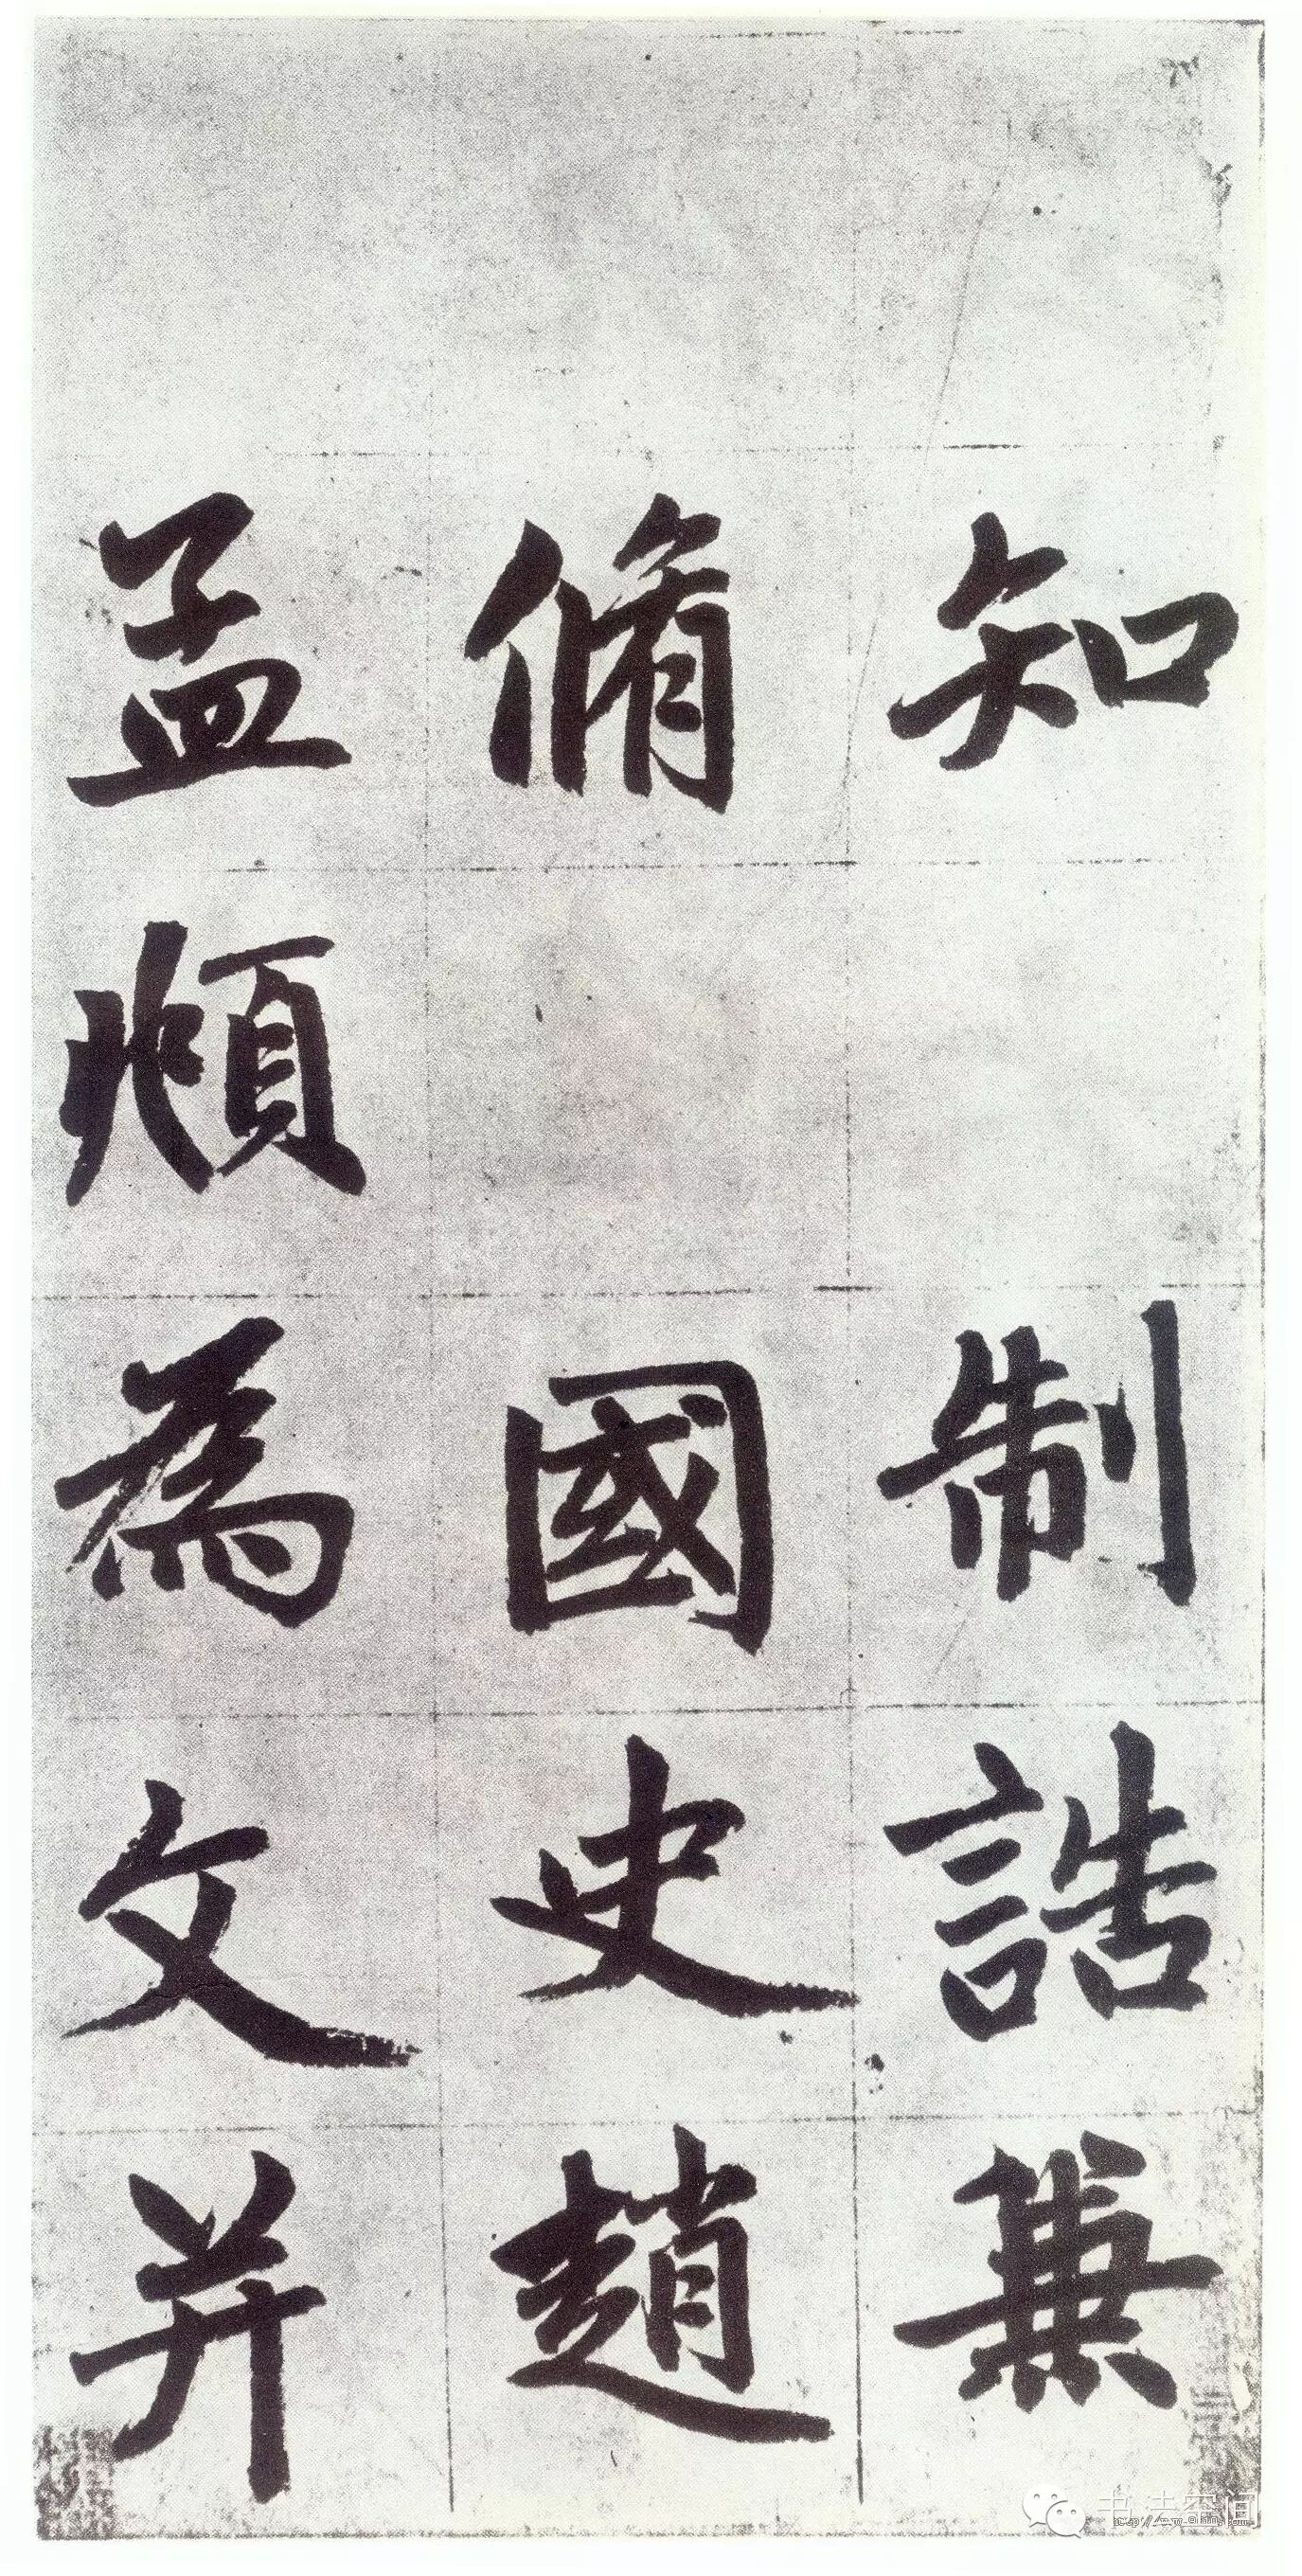 知制誥兼
脩國史趙
孟頫為文并
书法空间